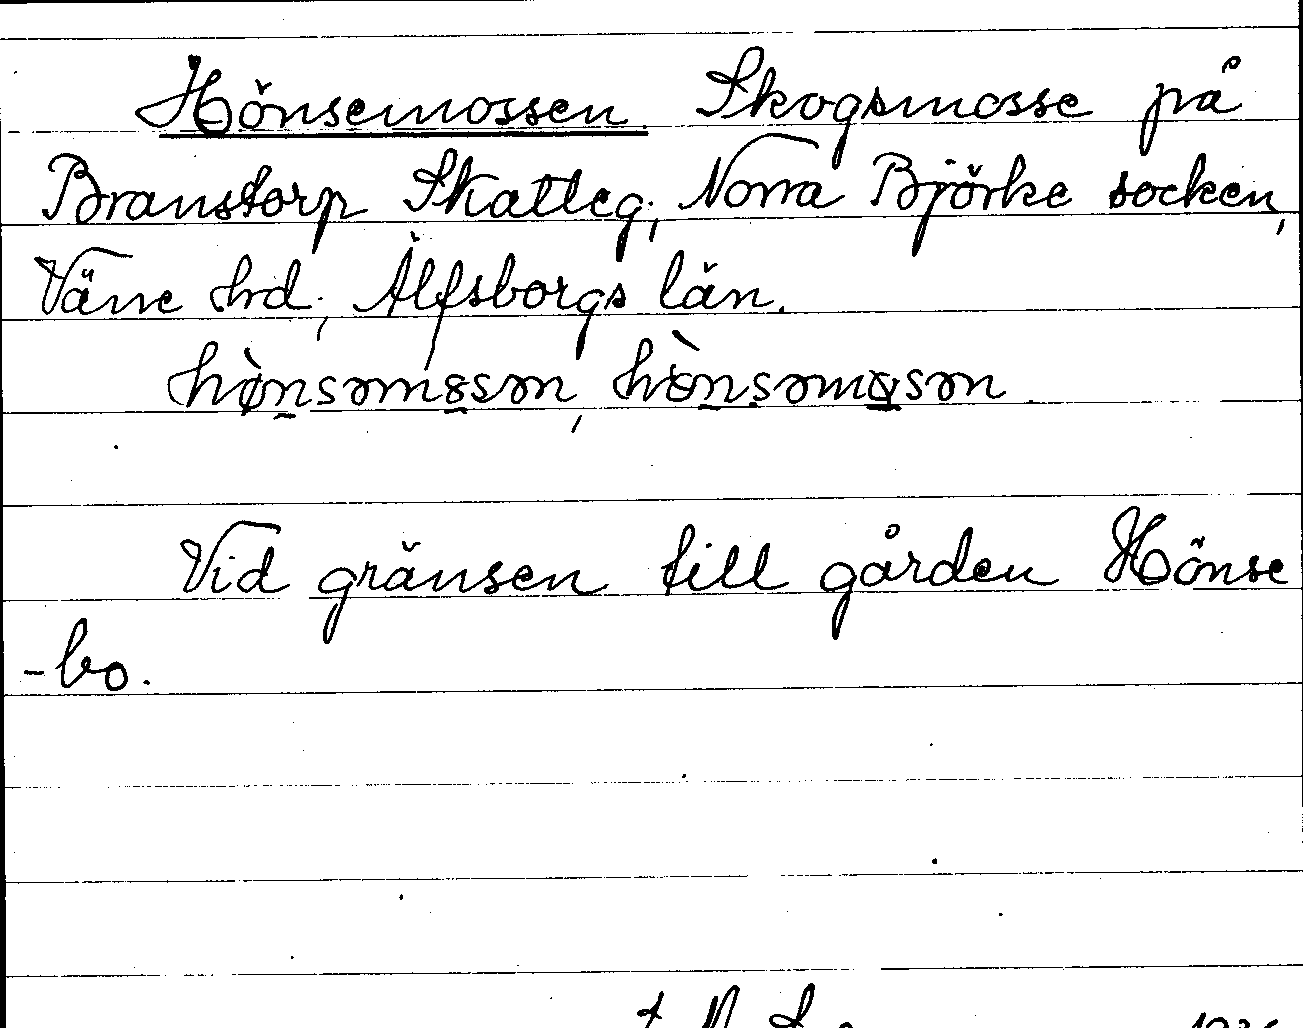 Hönsemossen. Skogsmosse på
Branstorp Skatteg., Norra Björke socken,
Väne hd., Älfsborgs län.
Vid gränsen till gården Hönse
-bo.